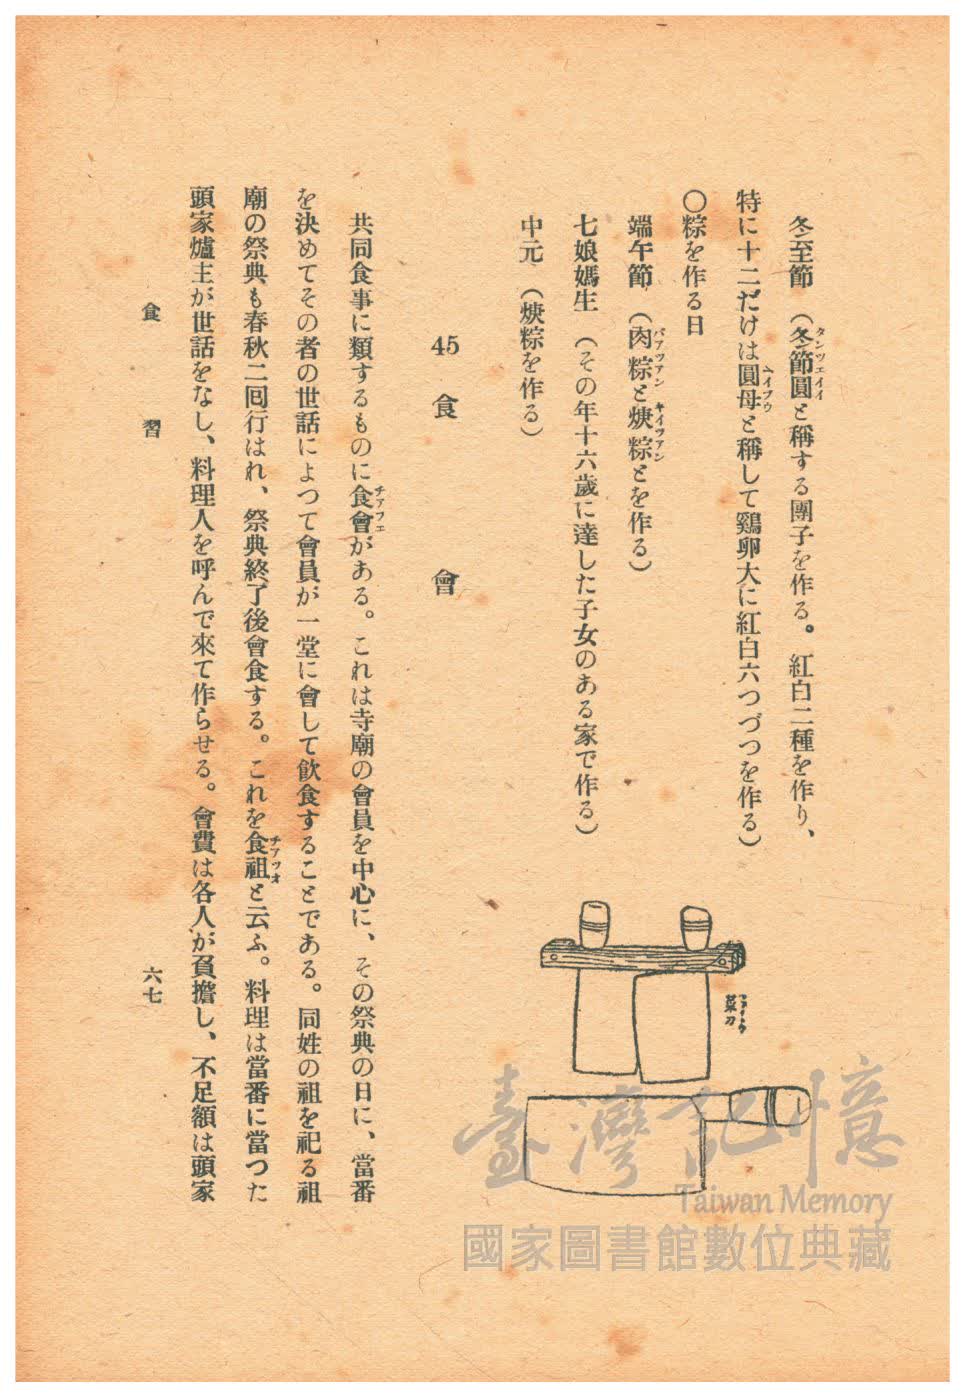 冬至節　（冬節圓と稱する團子を作る。紅白二種を作り、
タンツェイイ
特に十二だけは圓母と稱して鷄卵大に紅白六つづつを作る）
〇粽を作る日
端午節　（肉粽と焿粽とを作る）
バアツアン　キイツアン
七娘媽生　（その年十六歳に達した子女のある家で作る）
中元　（焿粽を作る）
菜刀
45　食會
共同食事に類するものに食會がある。これは寺廟の會員を中心に、その祭典の日に、當番
チアフエ
を決めてその者の世話によつて會員が一堂に會して飲食することである。同姓の祖を祀る祖
廟の祭典も春秋二回行はれ、祭典終了後會食する。これを食祖と云ふ。料理は當番に當つた
チアツオ
頭家爐主が世話をなし、料理人を呼んで來て作らせる。會費は各人が負擔し、不足額は頭家
食習
六七
臺灣記憶
Taiwan Memory
國家圖書館數位典藏